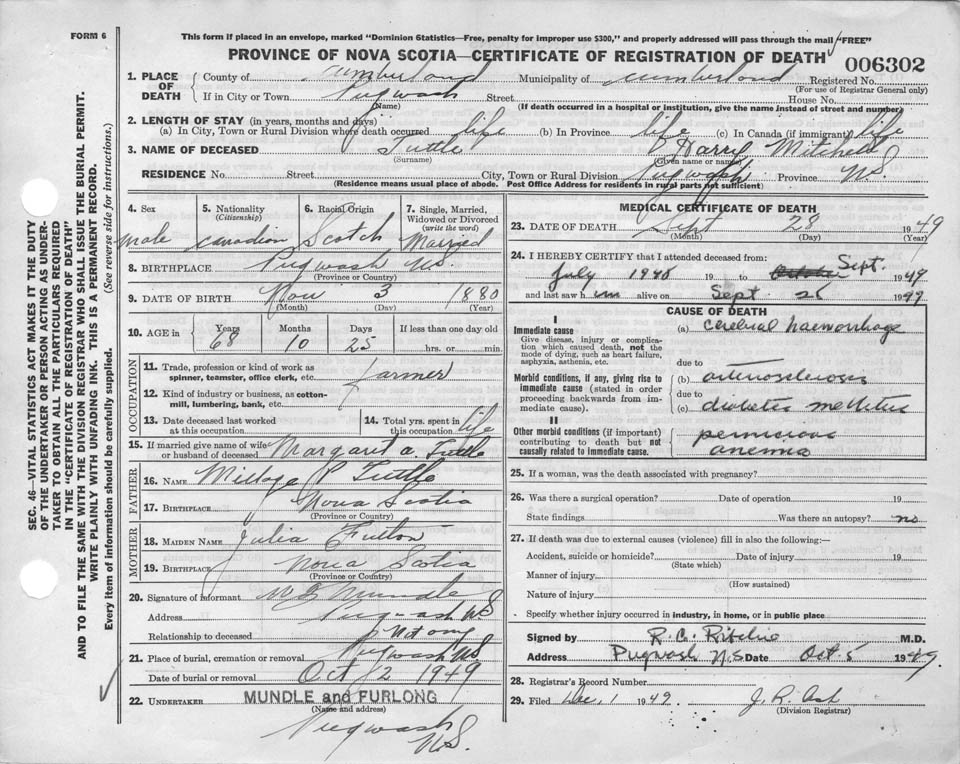 FORM 6
This form if placed in an envelope, marked "Dominion Statistics—Free, penalty for improper use $300," and properly addressed will pass through the mail "FREE"
PROVINCE OF NOVA SCOTIA—CERTIFICATE OF REGISTRATION OF DEATH
006302
1. PLACE OF DEATH
County of Cumberland Municipality of Cumberland Registered No.
(For use of Registrar General only)
If in City or Town Pugwash Street House No.
(Name) (If death occurred in a hospital or institution, give the name instead of street and number)
2. LENGTH OF STAY (in years, months and days)
(a) In City, Town or Rural Division where death occurred life (b) In Province life (c) In Canada (if immigrant) life
3. NAME OF DECEASED Tuttle Harry Mitchell
(Surname) (Given name or names)
RESIDENCE No. Street City, Town or Rural Division Pugwash Province N.S.
(Residence means usual place of abode. Post Office Address for residents in rural parts not sufficient)
4. Sex 5. Nationality (Citizenship) 6. Racial Origin 7. Single, Married, Widowed or Divorced (write the word)
male Canadian Scotch Married
8. BIRTHPLACE Pugwash N.S.
(Province or Country)
9. DATE OF BIRTH Nov 3 1880
(Month) (Day) (Year)
10. AGE in Years Months Days If less than one day old
68 10 25 hrs. or min.
OCCUPATION
11. Trade, profession or kind of work as spinner, teamster, office clerk, etc. farmer
12. Kind of industry or business, as cotton-mill, lumbering, bank, etc.
13. Date deceased last worked at this occupation
14. Total yrs. spent in this occupation life
15. If married give name of wife or husband of deceased Margaret A. Tuttle
FATHER
16. NAME P Tuttle
17. BIRTHPLACE Nova Scotia
(Province or Country)
MOTHER
18. MAIDEN NAME Julia Fulton
19. BIRTHPLACE Nova Scotia
(Province or Country)
20. Signature of informant Mundle
Address Pugwash N.S.
Relationship to deceased Not any
21. Place of burial, cremation or removal Pugwash N.S.
Date of burial or removal Oct 2 1949
22. UNDERTAKER MUNDLE and FURLONG
(Name and Address)
Pugwash
N.S.
MEDICAL CERTIFICATE OF DEATH
23. DATE OF DEATH Sept 28 1949
(Month) (Day) (Year)
24. I HEREBY CERTIFY that I attended deceased from:
July 19 to October Sept. 1949
and last saw him alive on Sept 1949
CAUSE OF DEATH
I
Immediate cause (a) cerebral haemorrhage
Give disease, injury or complication which caused death, not the mode of dying, such as heart failure, asphyxia, asthenia, etc.
due to
Morbid conditions, if any, giving rise to immediate cause (stated in order proceeding backwards from immediate cause).
(b) arteriosclerosis
due to
(c) diabetes mellitus
II
Other morbid conditions (if important) contributing to death but not causally related to immediate cause.
pernicious
anemia
25. If a woman, was the death associated with pregnancy?
26. Was there a surgical operation? Date of operation 19
State findings Was there an autopsy? no
27. If death was due to external causes (violence) fill in also the following:—
Accident, suicide or homicide? Date of injury 19
(State which)
Manner of injury
(How sustained)
Nature of injury
Specify whether injury occurred in industry, in home, or in public place
Signed by R. C. Ritchie M.D.
Address Pugwash N.S Date Oct 5 1949.
28. Registrar's Record Number
29. Filed Dec. 1 1949
(Division Registrar)
SEC. 46—VITAL STATISTICS ACT MAKES IT THE DUTY
OF THE UNDERTAKER OR PERSON ACTING AS UNDER-
TAKER TO OBTAIN ALL THE PARTICULARS REQUIRED
IN THE "CERTIFICATE OF REGISTRATION OF DEATH"
AND TO FILE THE SAME WITH THE DIVISION REGISTRAR WHO SHALL ISSUE THE BURIAL PERMIT.
WRITE PLAINLY WITH UNFADING INK. THIS IS A PERMANENT RECORD.
Every item of information should be carefully supplied. (See reverse side for instructions.)